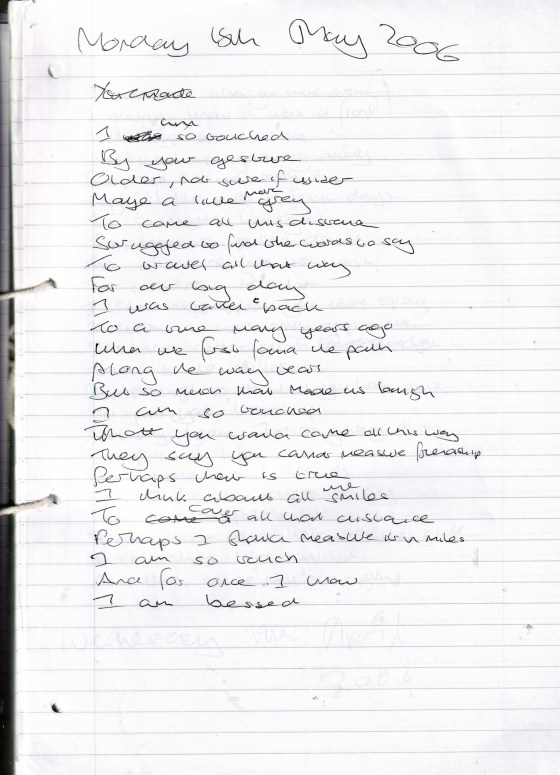 Monday 15th May 2006
I am so touched
By your gesture
Older, not sure if wiser
Maye a little more grey
To come all this distance
Struggled to find the words to say
To travel all that way
For our big day
I was taken back
To a time many years ago
When we first found the path
Along the way tears
But so much that made us laugh
I am so touched
That you would come all this way
They say you cannot measure friendship
Perhaps that is true
I think about all the smiles
To come cover all that distance
Perhaps I should measure it in miles
I am so touch
And for once I know
I am bessed